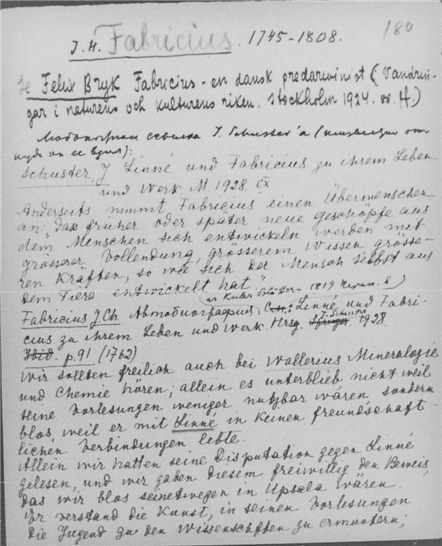 180
J. H. Fabricius. 1745-1808.
Felix Bryk Fabricius - en dansk predarwinist (Vandrin-
gar i naturens och kulturens riken. Stockholm 1924.
Любопытная ссылка J. Schuster'а
Schuster J Linné und Fabricius zu ihrem Leben
und Werk M 1928. CX
Anderseits nimmt Fabricius einen Übermenschen
an, dass früher oder später neue Geschöpfe aus
dem Menschen sich entwickeln werden mit
grösserer Vollendung, grösserem Wissen grösse-
ren Kräften, so wie sich der Mensch selbst aus
dem Tiere entwickelt hat"
Fabricius J Ch Автобиография: Linné und Fabri-
cius zu ihrem Leben und Werk Hrsg. J. Schuster 1928.
Ibid. p. 91 (1762)
Wir sollten freilich auch bei Wallerius Mineralogie
und Chemie hören; allein es unterblieb nicht weil
seine Vorlesungen weniger nutzbar wären sondern
blos, weil er mit Linné in keinen freundschaft-
lichen Verbindungen lebte.
Allein wir hatten seine Disputation gegen Linné
gelesen, und wir gaben diesem freiwillig den Beweis,
das wir blos seinetwegen in Upsala wären.
Er verstand die Kunst, in seinen Vorlesungen
die Jugend zu den Wissenschaften zu ermuntern;